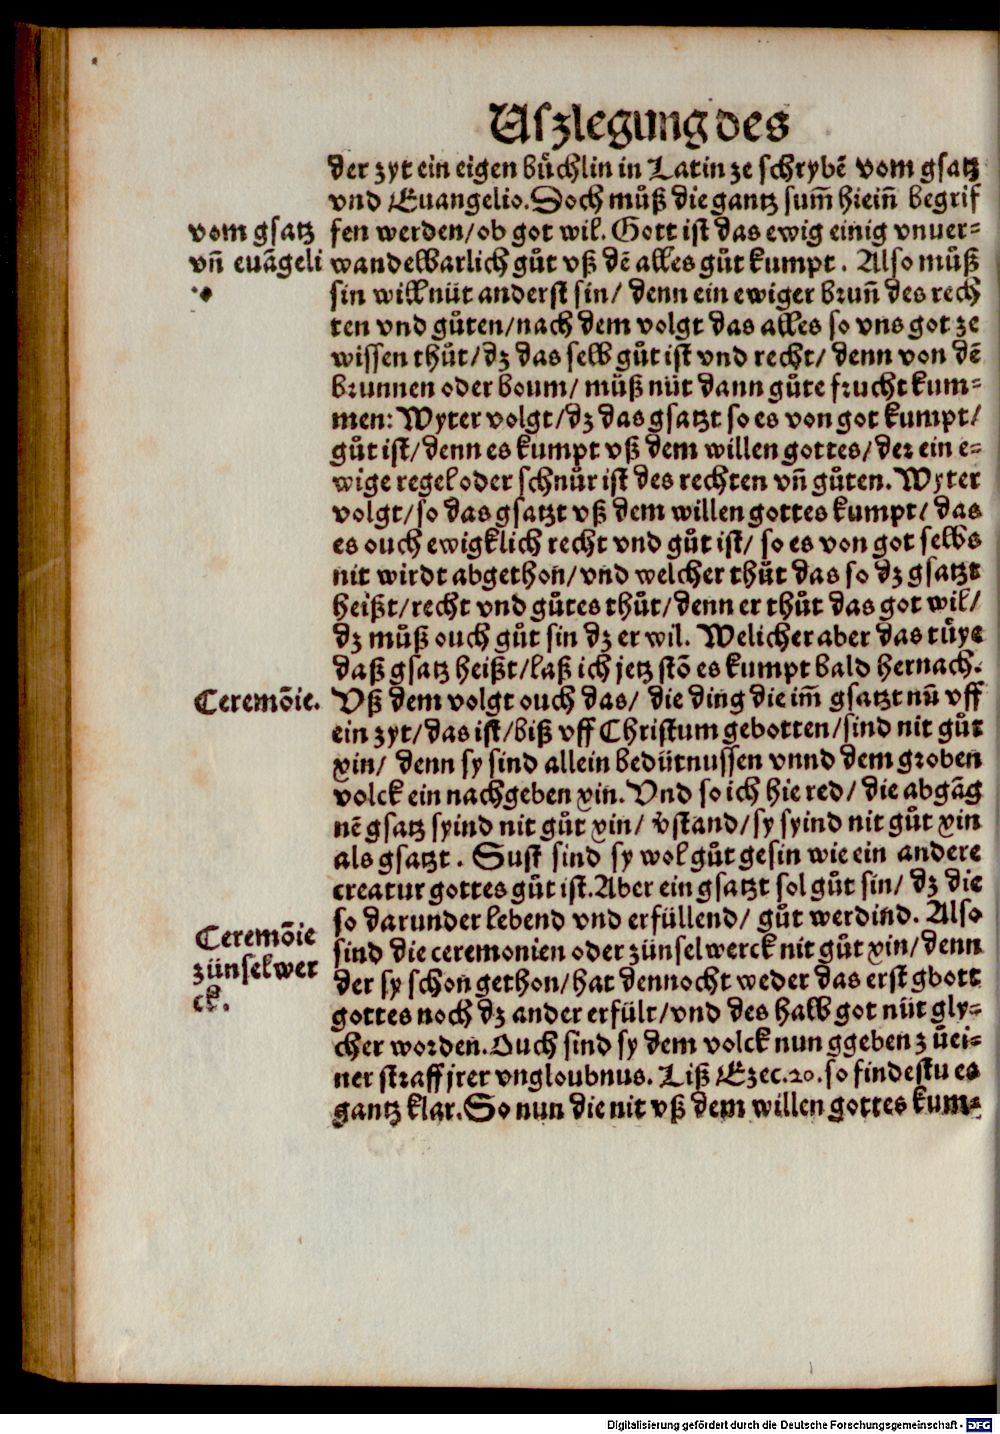 Uſzlegung des
der zyt ein eigen bůchlin in Latin ze ſchrybẽ vom gſatz
vnd Euangelio. Doch můß die gantz ſum̃ hiein̄ begrif
fen werden/ ob got wil. Gott iſt das ewig einig vnuer⸗
wandelbarlich gůt vß dẽ alles gůt kumpt. Alſo můß
ſin will nüt anderſt ſin/ denn ein ewiger brun̄ des rech
ten vnd gůten/ nach dem volgt das alles ſo vns got ze
wiſſen thůt/ dz das ſelb gůt iſt vnd recht/ denn von dẽ
brunnen oder boum/ můß nüt dann gůte frucht kum⸗
men: Wyter volgt/ dz das gſatzt ſo es von got kumpt/
gůt iſt/ denn es kumpt vß dem willen gottes/ der ein e⸗
wige regel oder ſchnůr iſt des rechten vn̄ gůten. Wyter
volgt/ ſo das gſatzt vß dem willen gottes kumpt/ das
es ouch ewigklich recht vnd gůt iſt/ ſo es von got ſelbs
nit wirdt abgethon/ vnd welcher thůt das ſo dz gſatzt
heißt/ recht vnd gůtes thůt/ denn er thůt das got wil/
dz můß ouch gůt ſin dz er wil. Welicher aber das tüye
daß gſatz heißt/ laß ich jetz ſtõ es kumpt bald hernach.
Vß dem volgt ouch das/ die ding die im̃ gſatzt nū vff
ein zyt/ das iſt/ biß vff Chriſtum gebotten/ ſind nit gůt
xin/ denn ſy ſind allein bedütnuſſen vnnd dem groben
volck ein nachgeben xin. Vnd ſo ich hie red/ die abgãg
nẽ gſatz ſyind nit gůt xin/ v̄ſtand/ ſy ſyind nit gůt xin
als gſatzt. Suſt ſind ſy wol gůt geſin wie ein andere
creatur gottes gůt iſt. Aber ein gſatzt ſol gůt ſin/ dz die
ſo darunder lebend vnd erfüllend/ gůt werdind. Alſo
ſind die ceremonien oder zünſelwerck nit gůt xin/ denn
der ſy ſchon gethon/ hat dennocht weder das erſt gbott
gottes noch dz ander erfült/ vnd des halb got nüt gly⸗
cher worden. Ouch ſind ſy dem volck nun ggeben zů ei⸗
ner ſtraff jrer vngloubnus. Liß Ezec. 20. ſo findeſtu es
gantz klar. So nun die nit vß dem willen gottes kum⸗
vom gſatz
vn̄ euãgeli
Ceremõie.
Ceremõie
zünſelwer
ck.
Digitalisierung gefördert durch die Deutsche Forschungsgemeinschaft - DFG